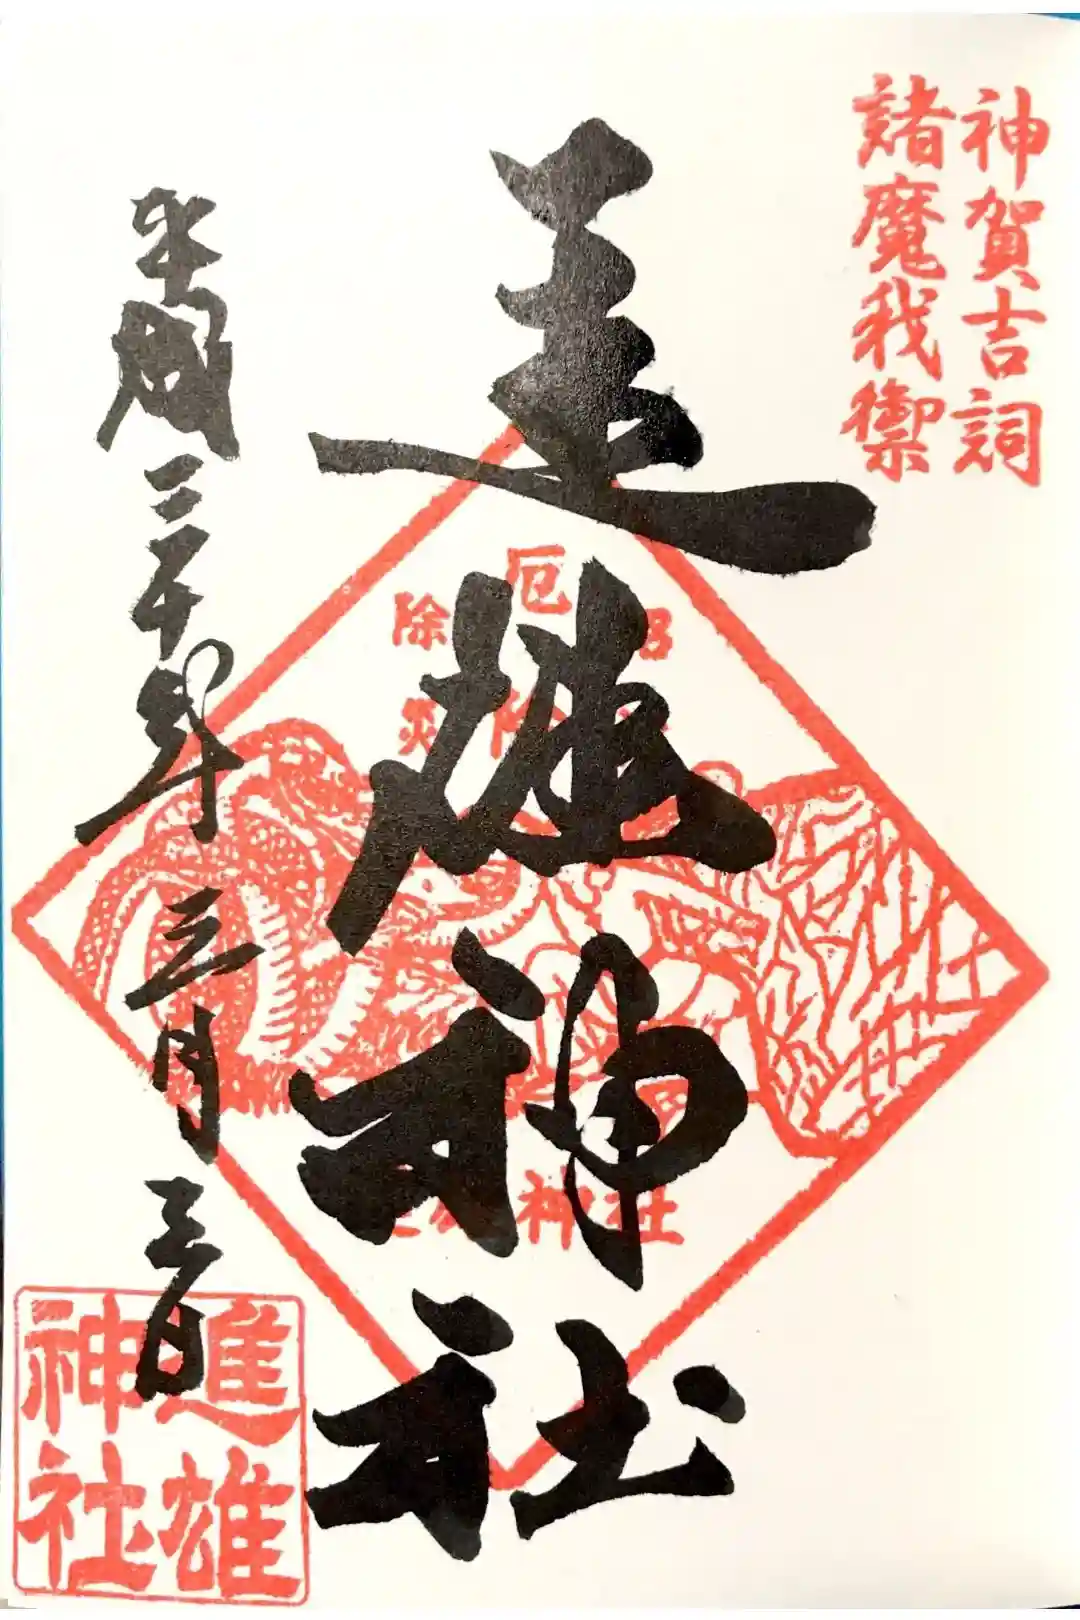 神賀吉詞
諸魔我禦
進雄神社
厄除
除災
神社
平成三十年三月三日
進雄
神社